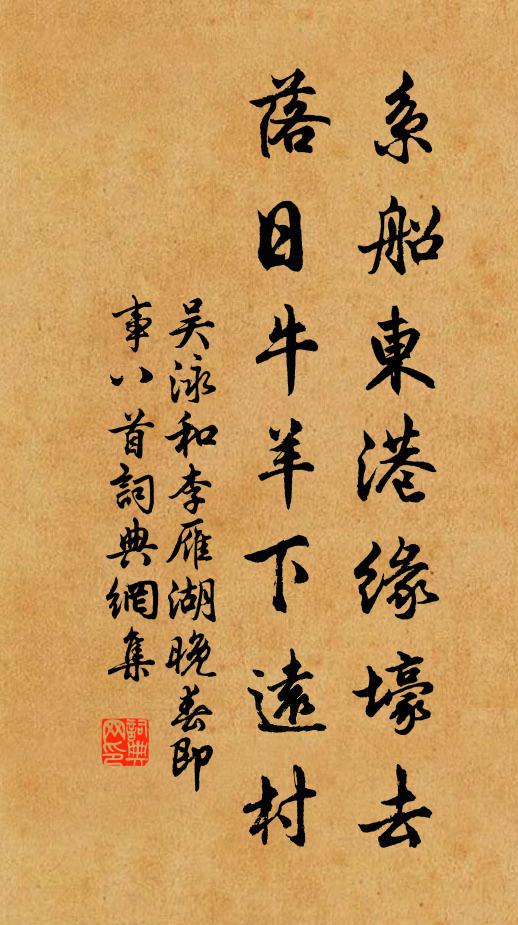 系船東港緣壕去
落日牛羊下遠村
吳泳和李雁湖晚春即
事八首詞典網集
詞典
网印